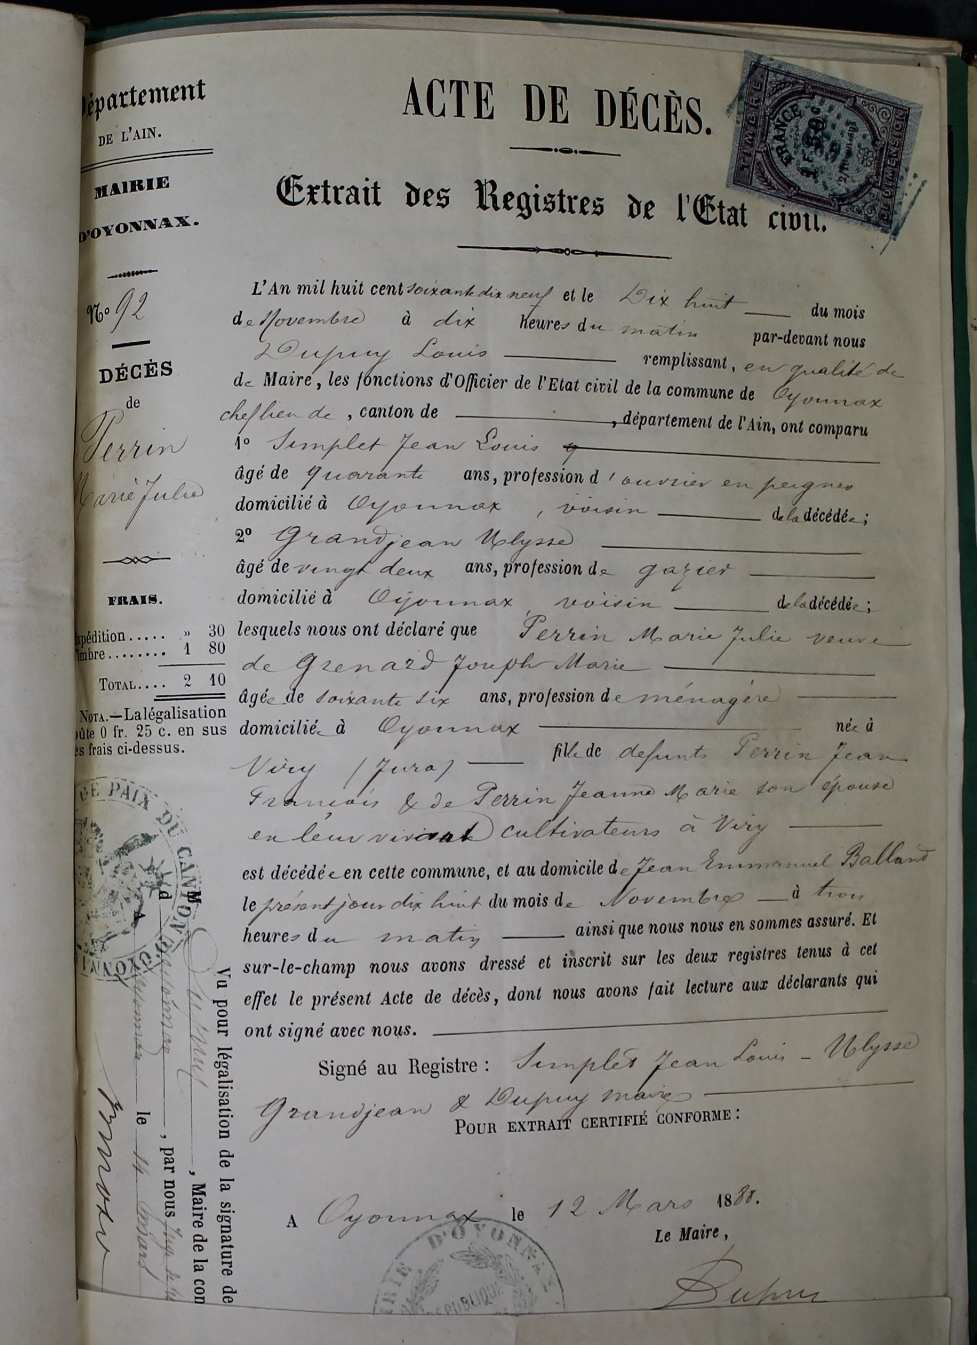 Département
DE L'AIN.
MAIRIE
D'OYONNAX.
N° 92
DÉCÈS
de
Perrin
Marie Julie
FRAIS.
Expédition..... » 30
Timbre........ 1 80
TOTAL.... 2 10
NOTA.—La légalisation
coûte 0 fr. 25 c. en sus
des frais ci-dessus.
DE PAIX DU CANTON D'OYONNAX
Vu pour légalisation de la signature de
M
, Maire de la com
d , par nous Juge de
A Oyonnax le 14 Mars
ACTE DE DÉCÈS.
TIMBRE
FRANCE
DIMENSION
Extrait des Registres de l'Etat civil.
L'An mil huit cent soixante dix neuf et le Dix huit du mois
de Novembre à dix heures du matin par-devant nous
Dupuy Louis remplissant, en qualité de
de Maire, les fonctions d'Officier de l'Etat civil de la commune de Oyonnax
chef lieu de, canton de , département de l'Ain, ont comparu
1° Simplet Jean Louis
âgé de quarante ans, profession d'ouvrier en peignes
domicilié à Oyonnax, voisin de la décédée;
2° Grandjean Ulysse
âgé de vingt deux ans, profession de gazier
domicilié à Oyonnax, voisin de la décédée;
lesquels nous ont déclaré que Perrin Marie Julie veuve
de Grenard Joseph Marie
âgée de soixante six ans, profession de ménagère
domiciliée à Oyonnax née à
Viry (Jura) fille de defunts Perrin Jean
François & de Perrin Jeanne Marie son épouse
en leur vivant cultivateurs à Viry
est décédée en cette commune, et au domicile de Jean Emmanuel Balland
le présent jour dix huit du mois de Novembre à trois
heures du matin ainsi que nous nous en sommes assuré. Et
sur-le-champ nous avons dressé et inscrit sur les deux registres tenus à cet
effet le présent Acte de décès, dont nous avons fait lecture aux déclarants qui
ont signé avec nous.
Signé au Registre: Simplet Jean Louis – Ulysse
Grandjean & Dupuy maire
POUR EXTRAIT CERTIFIÉ CONFORME:
A Oyonnax le 12 Mars 1880.
Le Maire,
Dupuy
MAIRIE D'OYONNAX
RÉPUBLIQUE